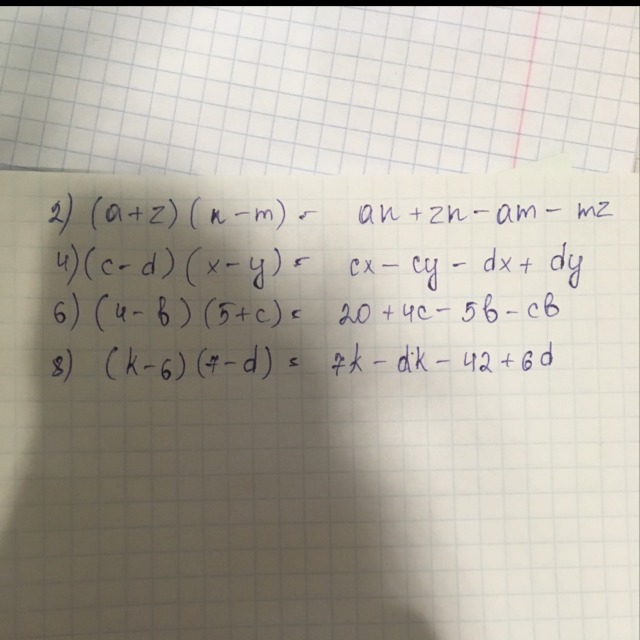 2) (a+z)(n-m) = an+zn-am-mz
4) (c-d)(x-y) = cx-cy-dx+dy
6) (4-b)(5+c) = 20+4c-5b-cb
8) (k-6)(7-d) = 7k-dk-42+6d